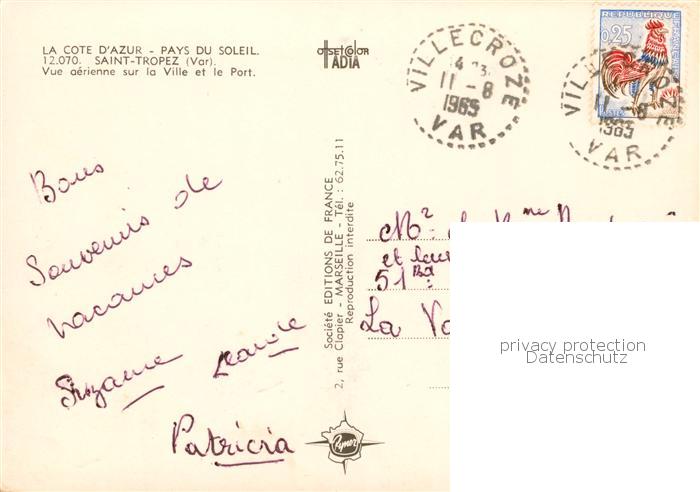 LA COTE D'AZUR - PAYS DU SOLEIL.
12.070. SAINT-TROPEZ (Var).
Vue aérienne sur la Ville et le Port.
OFFSETCOLOR
TADIA
VILLECROZE
11-8
1965
VAR
REPUBLIQUE FRANÇAISE
0,25
POSTES
VILLECROZE
11-8
1965
VAR
Bons
Souvenirs de
vacances
Suzanne
Patricia
Société EDITIONS DE FRANCE
2, rue Clapier - MARSEILLE - Tél. : 62.75.11
Reproduction interdite
Mr et Mme
et leur
51 Bd
La Va
privacy protection
Datenschutz